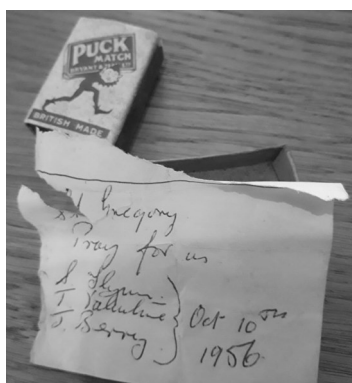 PUCK
MATCH
BRITISH MADE
St Gregory
Pray for us
S Flynn
T Valentine
J Berry
Oct 10th
1956